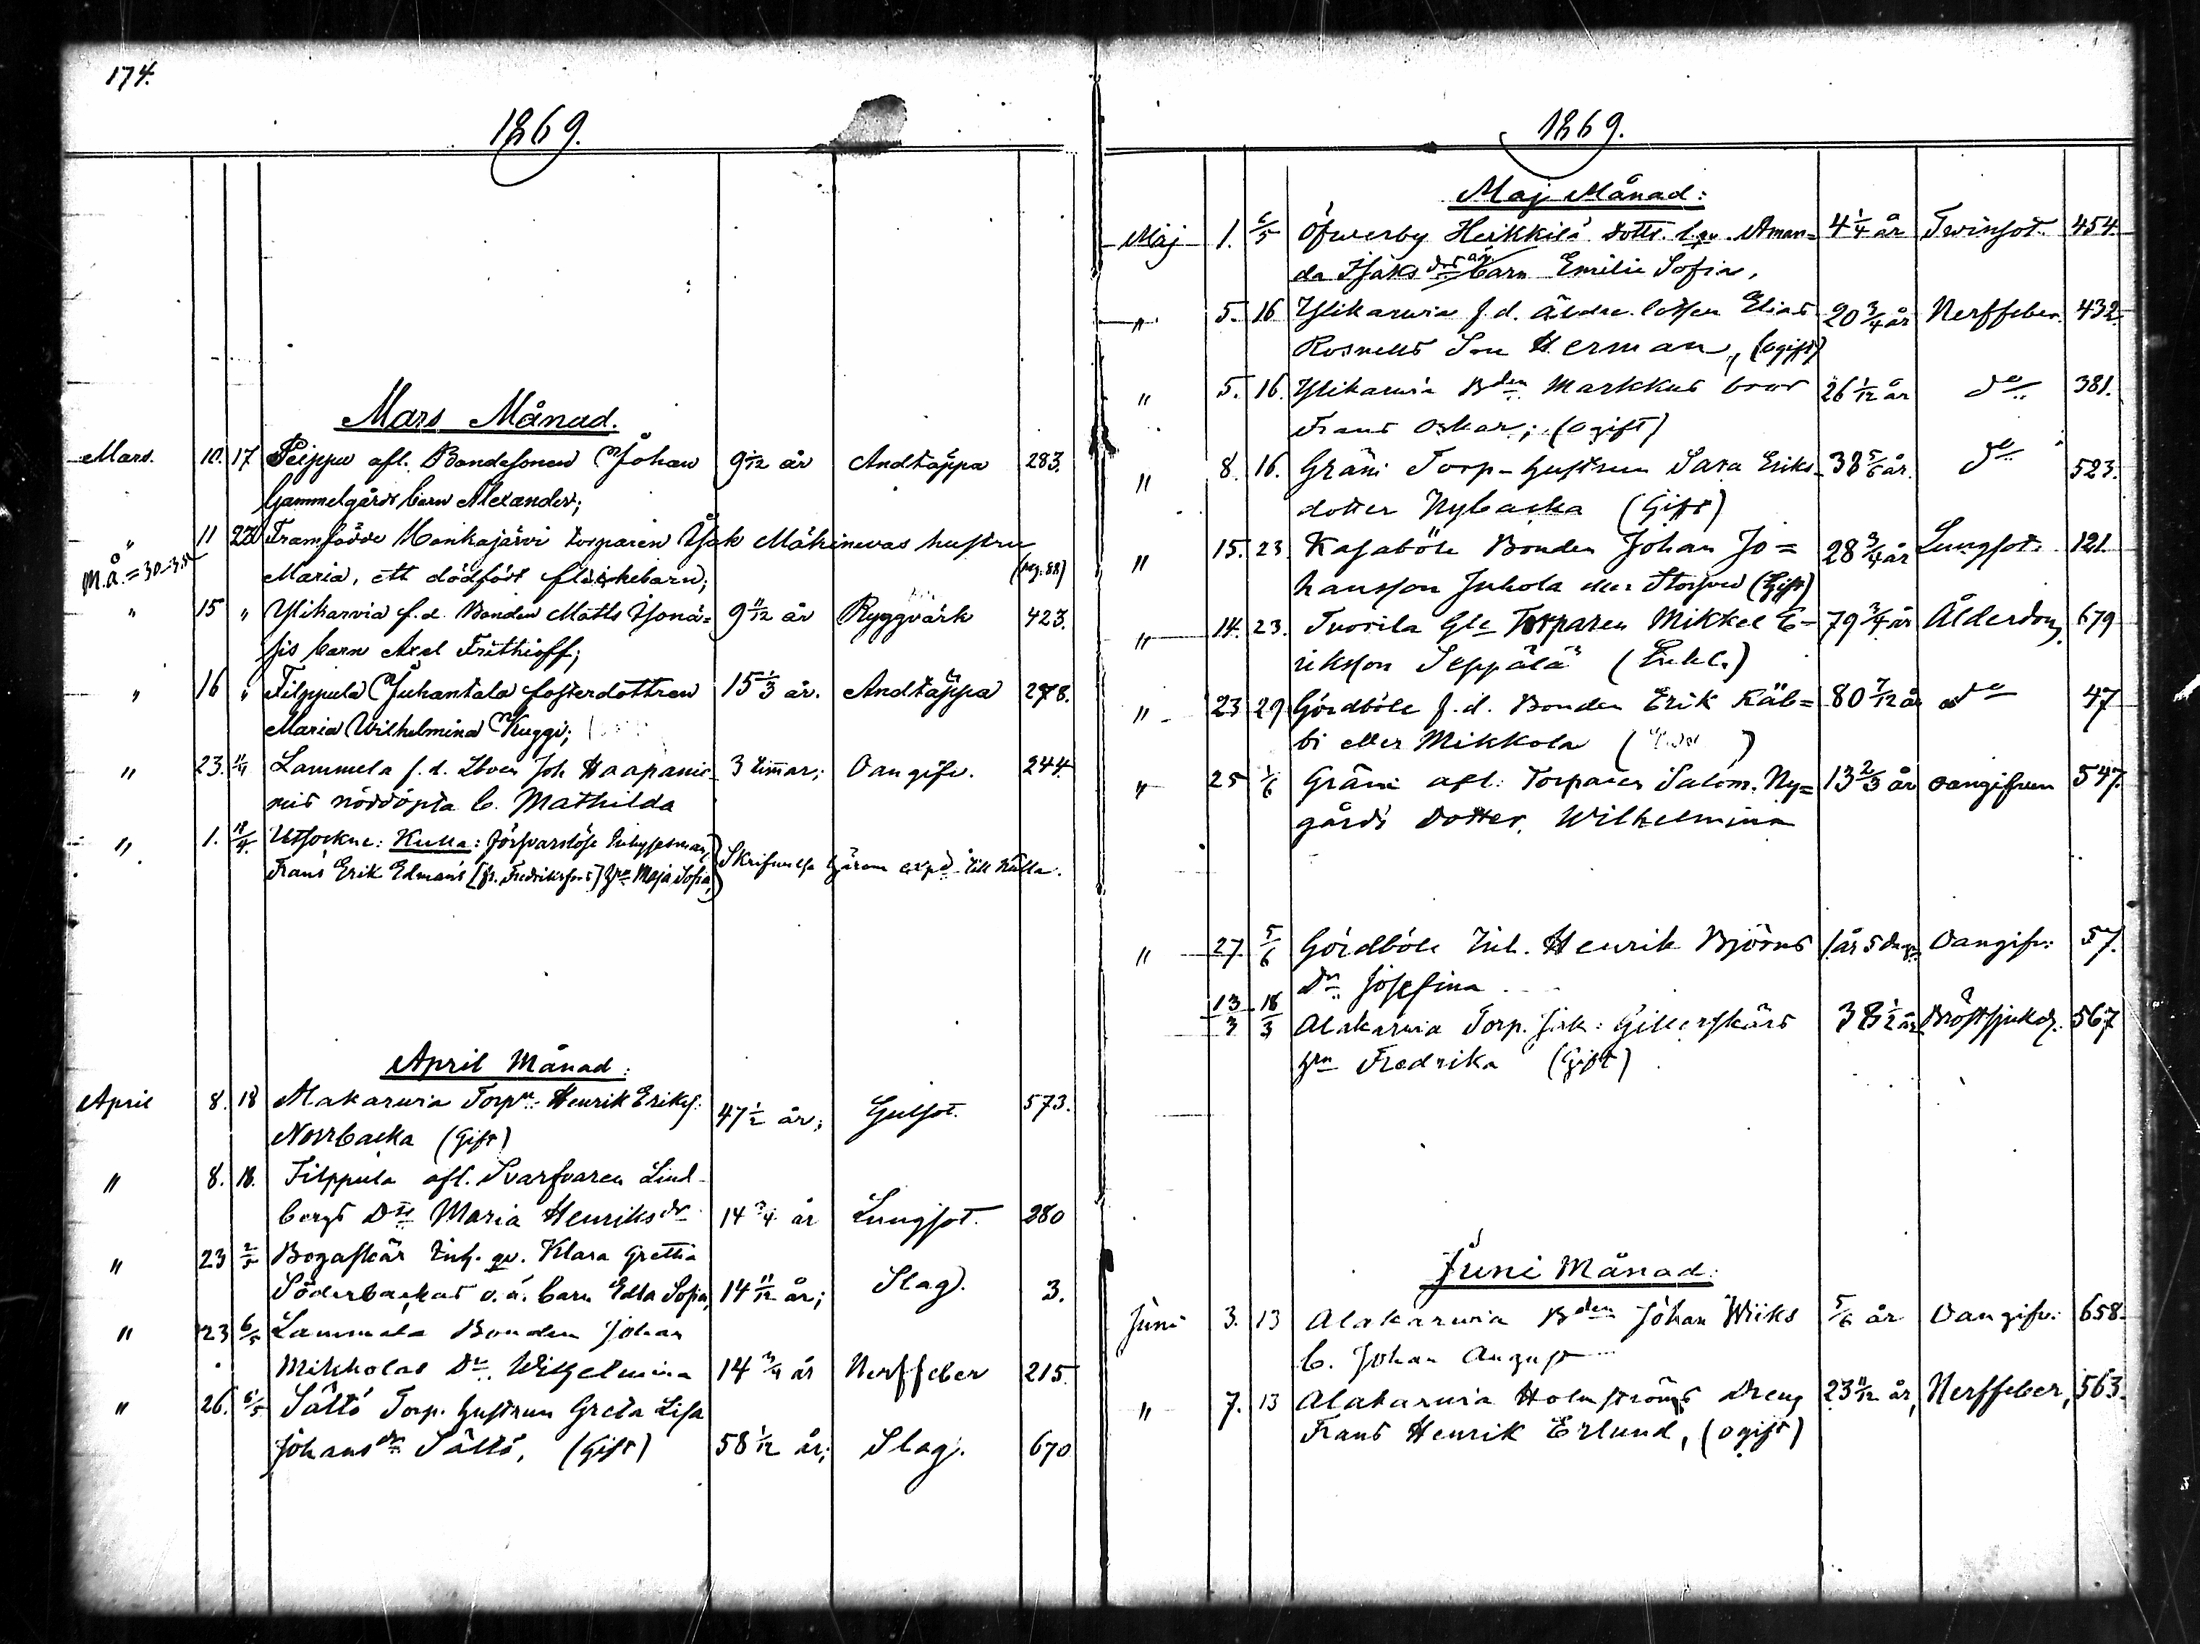 174.
1869.
Mars Månad.
Mars. 10. 17 Peippu afl. Bondesonen Johan 9 1/12 år Andtäppa 283.
Gammelgårds barn Alexander;
" 11 22 Framfödde Honkajärvi torparen Isak Mäkinevas hustru
m.å. = 30–35 Maria, ett dödfödt flickebarn; (pag. 88)
" 15 " Ylikarvia f.d. Bonden Matts Isonä= 9 11/12 år Ryggvärk 423.
jis barn Axel Frithioff;
" 16 " Filppula Juhantala fosterdottren 15 1/3 år. Andtäppa 278.
Maria Wilhelmina Kuggi;
" 23. 11/4 Lammela f.d. Joh Haapanie- 3 timmar; Oangifv. 244
mis nöddöpta b. Mathilda
" 1. 18/4. Utsockne: Kulla: försvarslöse Inhysesman
Frans Erik Edmans [fr. Fredriksfors] hu Maja Sofia, Skrifvelse härom exp. till Kulla.
April Månad:
April 8. 18 Alakarvia Torp Henrik Eriks: 47 1/2 år; Gulsot. 573.
Norrbacka (Gift)
" 8. 18. Filppula afl. Svarfvaren Lind-
bergs Dr Maria Henriksdr 14 3/4 år Lungsot. 280
" 23 2/5 Bogaskär Inh. qv. Klara Gretha
Söderbackas o.ä. barn Edla Sofia, 14 11/12 år; Slag. 3.
" 23 6/5 Lammela Bonden Johan
Mikkolas Dr. Wilhelmina 14 3/4 år Nerffeber 215.
" 26. 6/5 Sälttö Torp. hustrun Greta Lisa
Johansdr Sälttö, (Gift) 58 1/12 år; Slag. 670
1869.
Maj Månad:
Maj 1. 6/5 Öfwerby Heikkilä dottr. Aman= 4 1/4 år Twinsot. 454
da Isaksdr barn Emilie Sofia,
" 5. 16 Ylikarwia f.d. Äldre lotsen Elias 20 3/4 år Nerffeber 432.
Rosnells Son Herman, (ogift)
" 5. 16. Ylikarwia Bden Markkus bror 26 1/12 år do 381.
Frans Oskar; (ogift)
" 8. 16. Gräni Torp-hustrun Sara Eriks- 38 5/6 år do 523.
dotter Nybacka (Gift)
" 15. 23 Kasaböle Bonden Johan Jo= 28 3/4 år Lungsot: 121.
hansson Juhola eller (Gift)
" 14. 23. Tuorila Gle Torparen Mikkel E- 79 3/4 år Ålderdom, 679
riksson Seppälä (Enkl.)
" 23 29 Gördböle f.d. Bonden Erik Käb= 80 7/12 år do 47
bi eller Mikkola ( )
" 25 1/6 Gräni afl: Torparen Salom. Ny= 13 2/3 år oangifven 547.
gårds Dotter. Wilhelmina
" 27. 5/6 Gördböle Inh. Henrik Björns 1 år 5 dagar Oangifv: 57.
Dr Josefina
13/3 18/3 Alakarwia Torp. Isak: Gillerskärs 38 1/2 år Bröstsjukd. 567
hu Fredrika (Gift)
Juni Månad:
Juni 3. 13 Alakarwia Bden Johan Wiiks 5/6 år Oangifv: 658.
b. Johan August
" 7. 13 Alakarwia Holmströms Dreng 23 11/12 år, Nerffeber, 563.
Frans Henrik Erlund, (ogift)